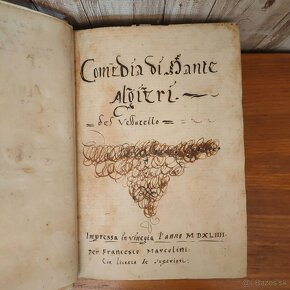 Comedia di Dante
Algieri.
del Vellutello
Impressa in vinegia l'anno MDXLIIII.
per Francesco Marcolini.
Con licenza de superiori.